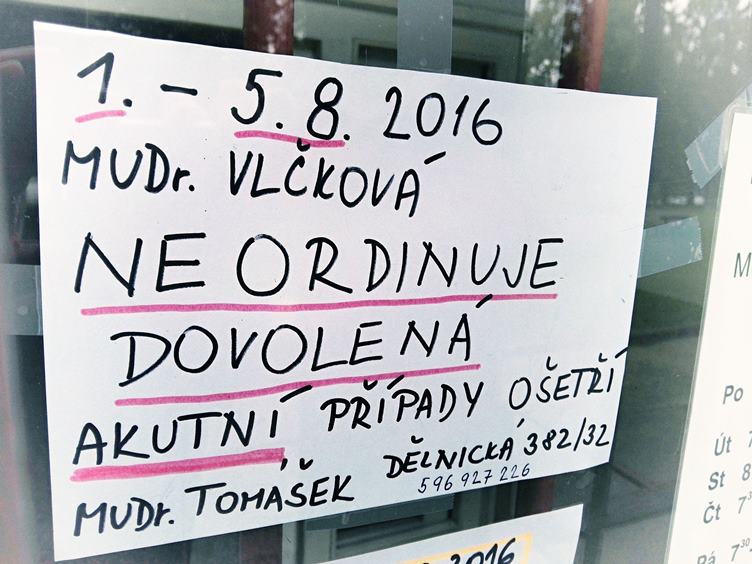 1. - 5. 8. 2016
MUDr. VLČKOVÁ
NE ORDINUJE
DOVOLENÁ
AKUTNÍ PŘÍPADY OŠETŘÍ
MUDr. TOMÁŠEK DĚLNICKÁ 382/32
596 927 226
2016
M
Po
Út 7
St 8
Čt 7
Pá 7³⁰